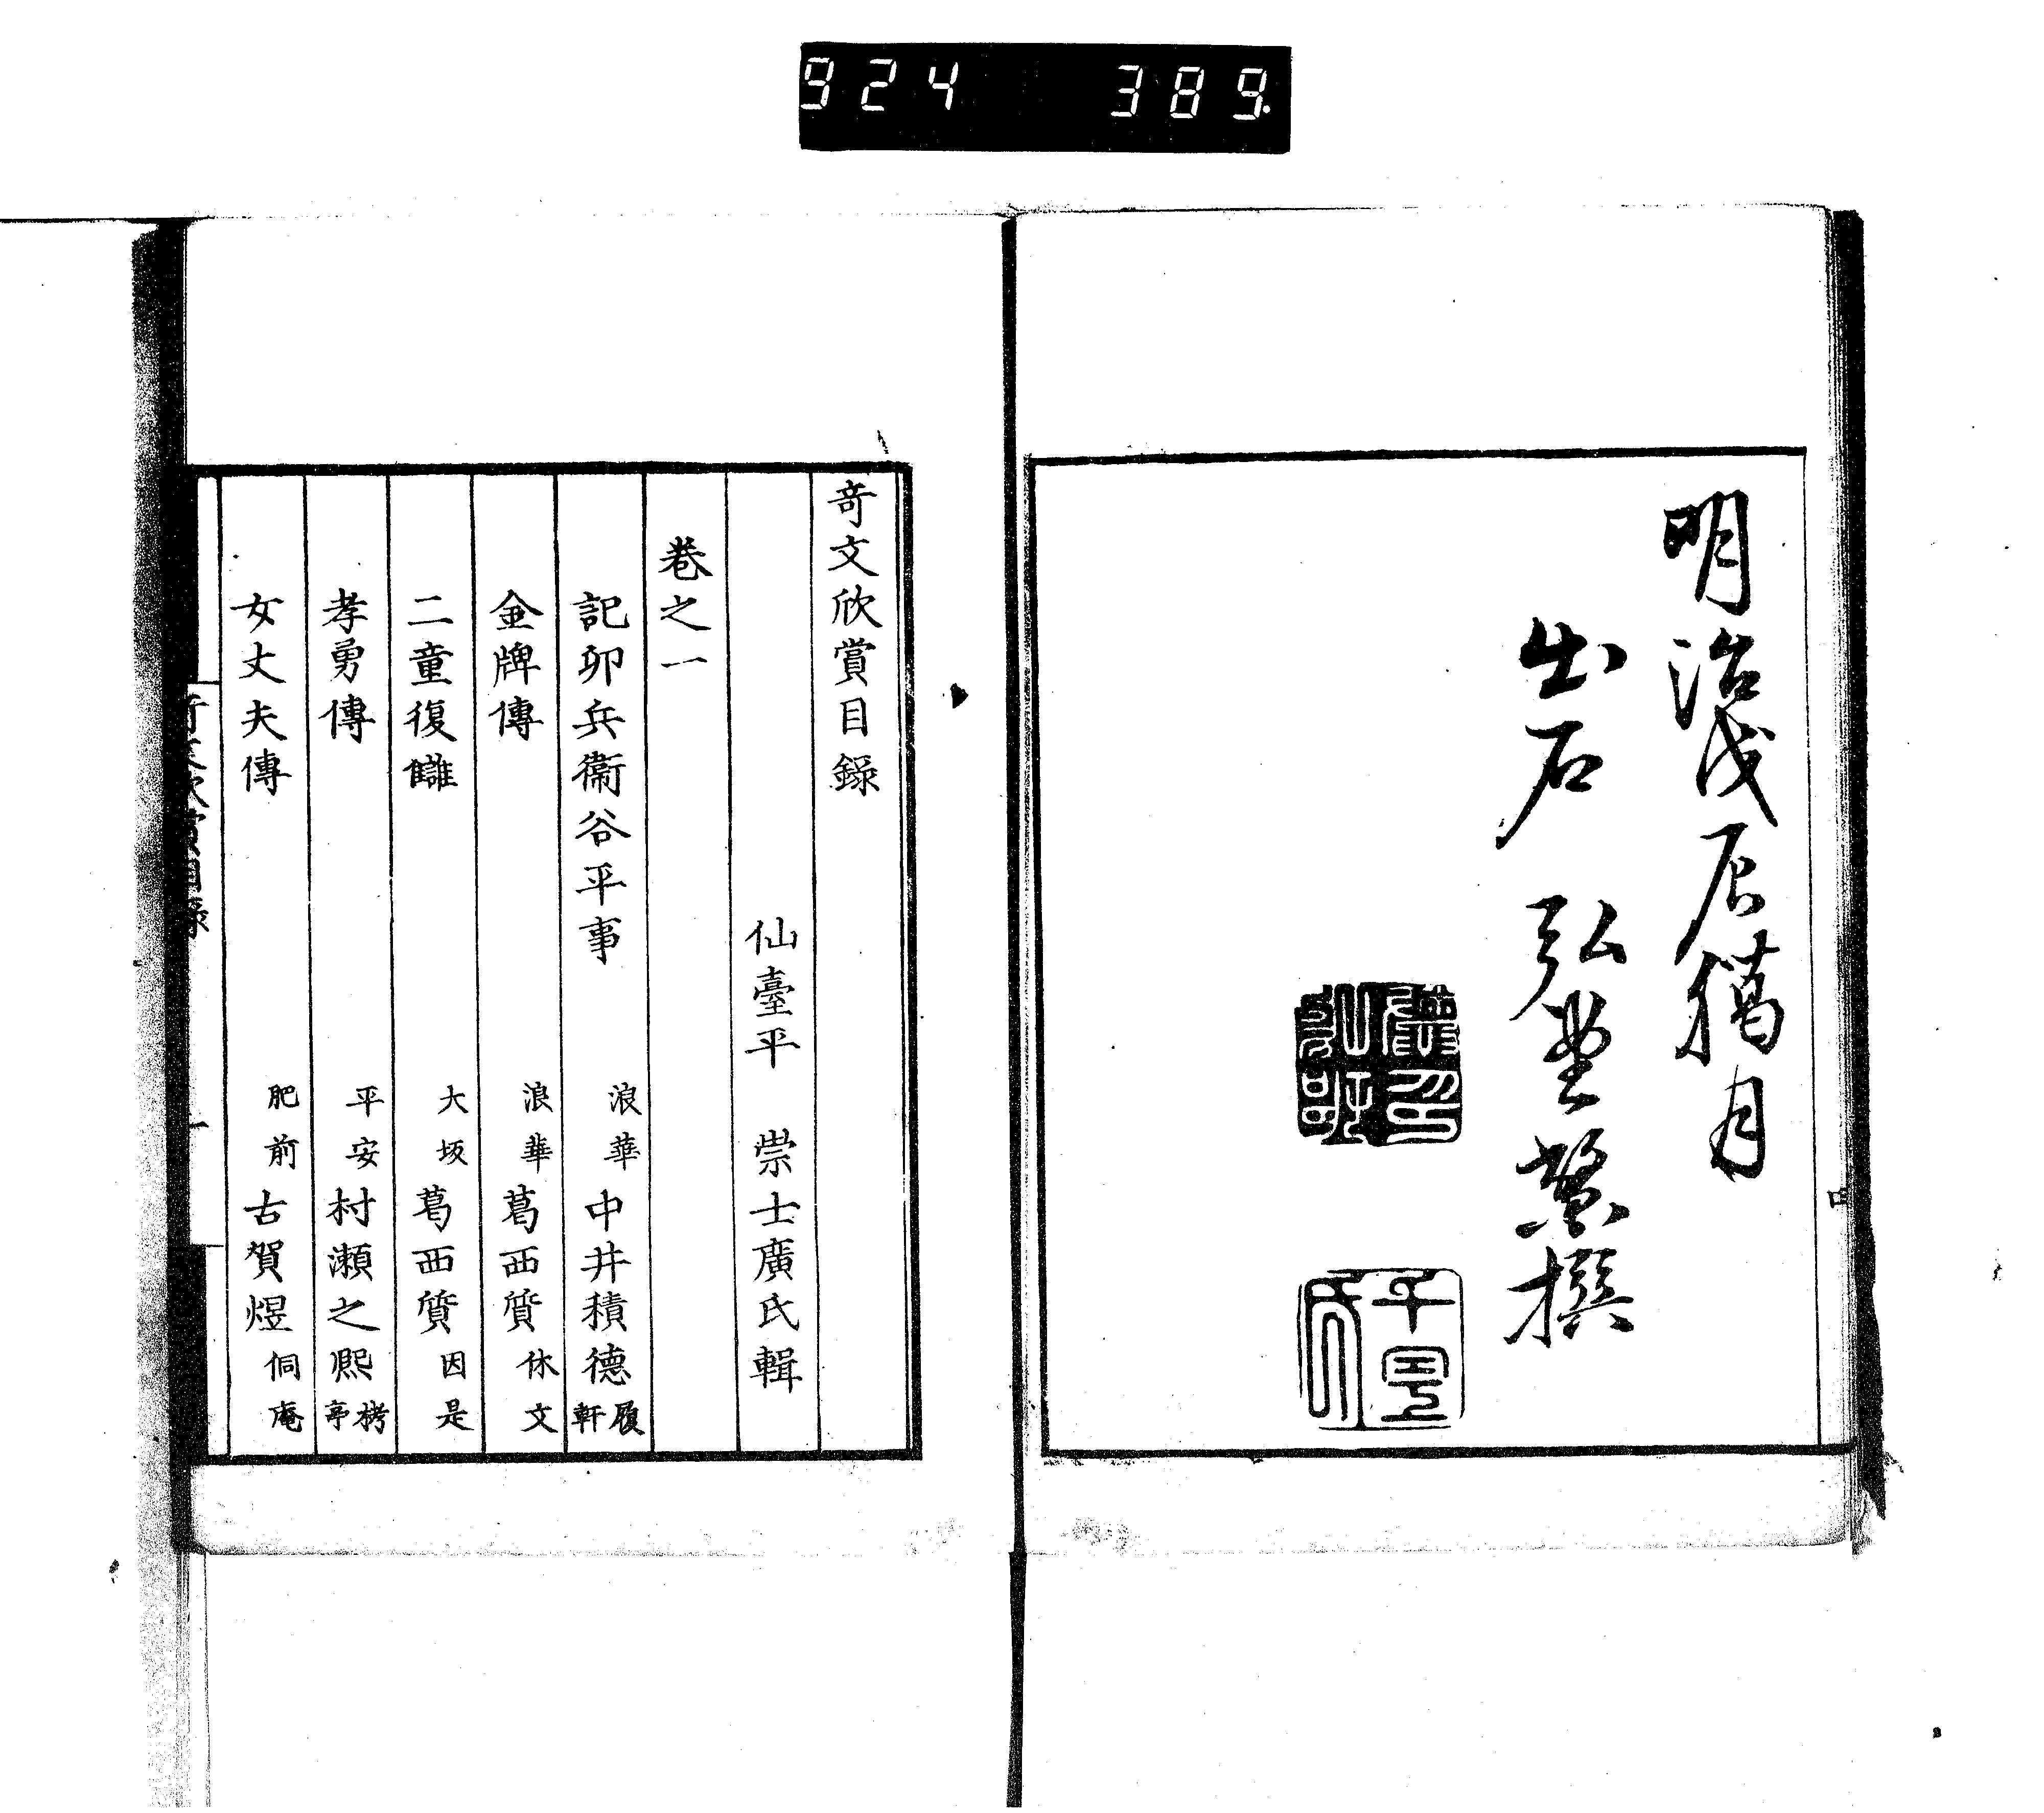 924 389.
明治戊辰獦月
出石 弘堂 繁撰
四
奇文欣賞目錄
仙臺平 崇士廣氏輯
巻之一
記卯兵衞谷平事 浪華中井積德履軒
金牌傳 浪華葛西質休文
二童復讎 大坂葛西質因是
孝勇傳 平安村瀬之熙栲亭
女丈夫傳 肥前古賀煜侗庵
奇文欣賞目錄 一